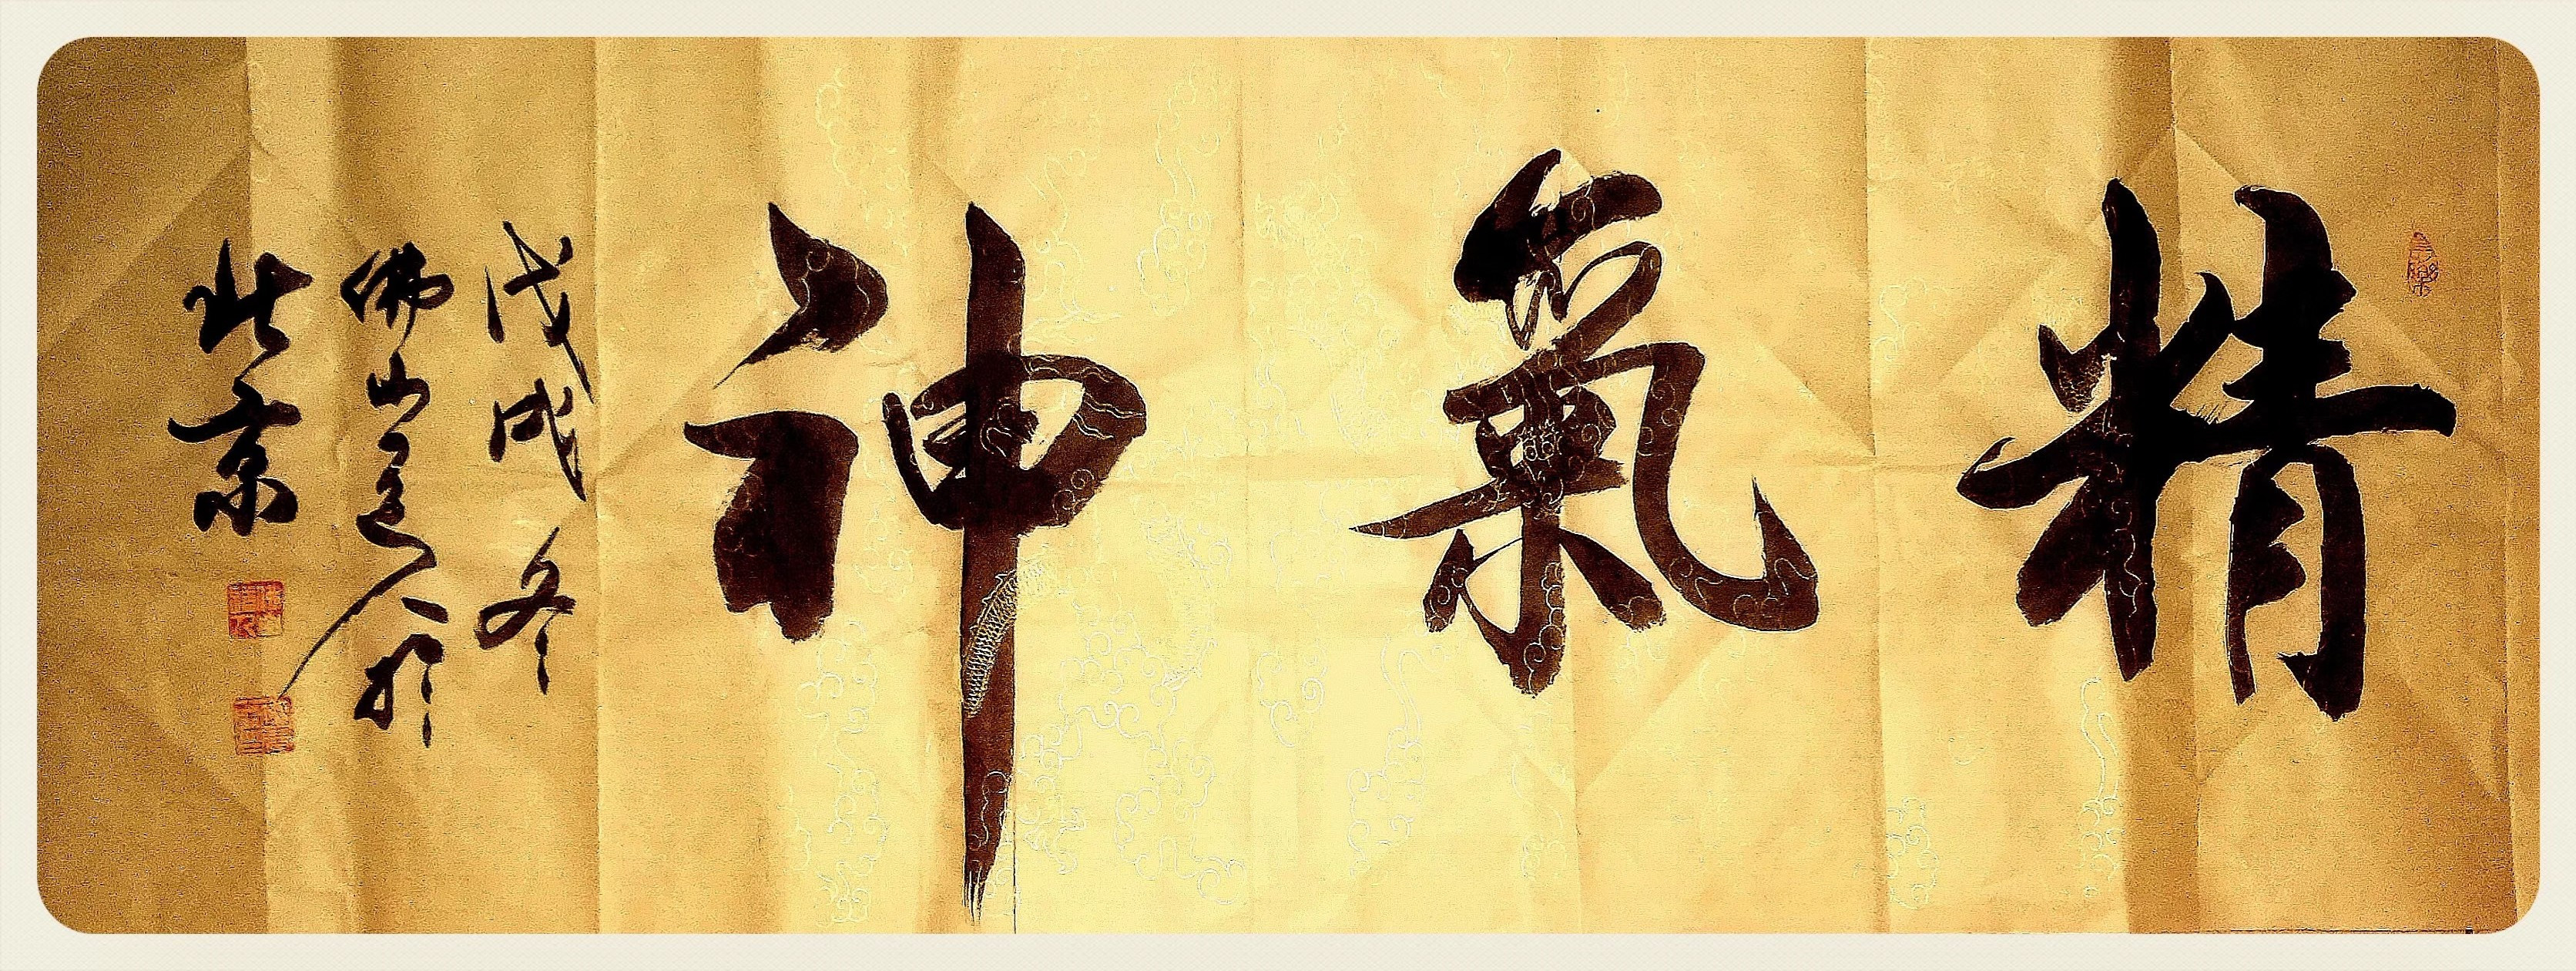 精氣神
戊戌冬
佛山道人於
北京